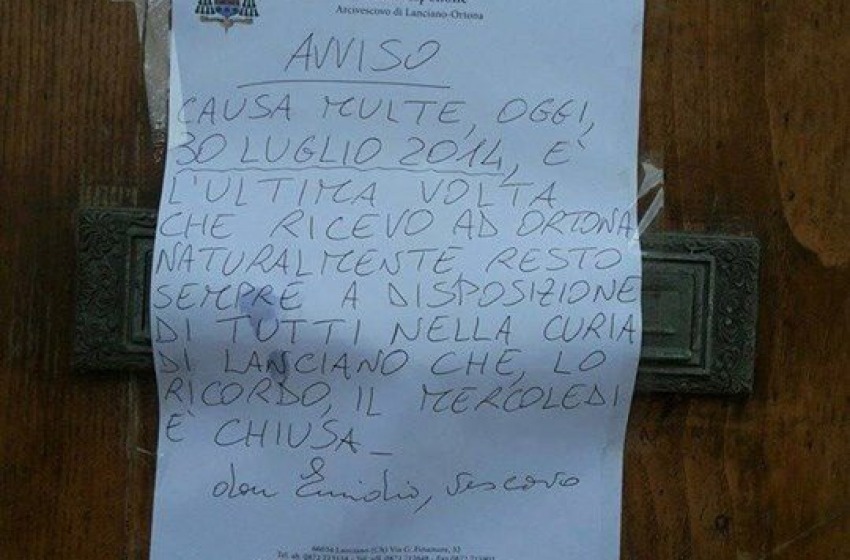 Arcivescovo di Lanciano-Ortona
AVVISO
CAUSA MULTE, OGGI,
30 LUGLIO 2014, E'
L'ULTIMA VOLTA
CHE RICEVO AD ORTONA
NATURALMENTE, RESTO
SEMPRE A DISPOSIZIONE
DI TUTTI NELLA CURIA
DI LANCIANO CHE, LO
RICORDO, IL MERCOLEDI
E' CHIUSA_
don Emidio, vescovo
66034 Lanciano (Ch) Via G. Finamore,